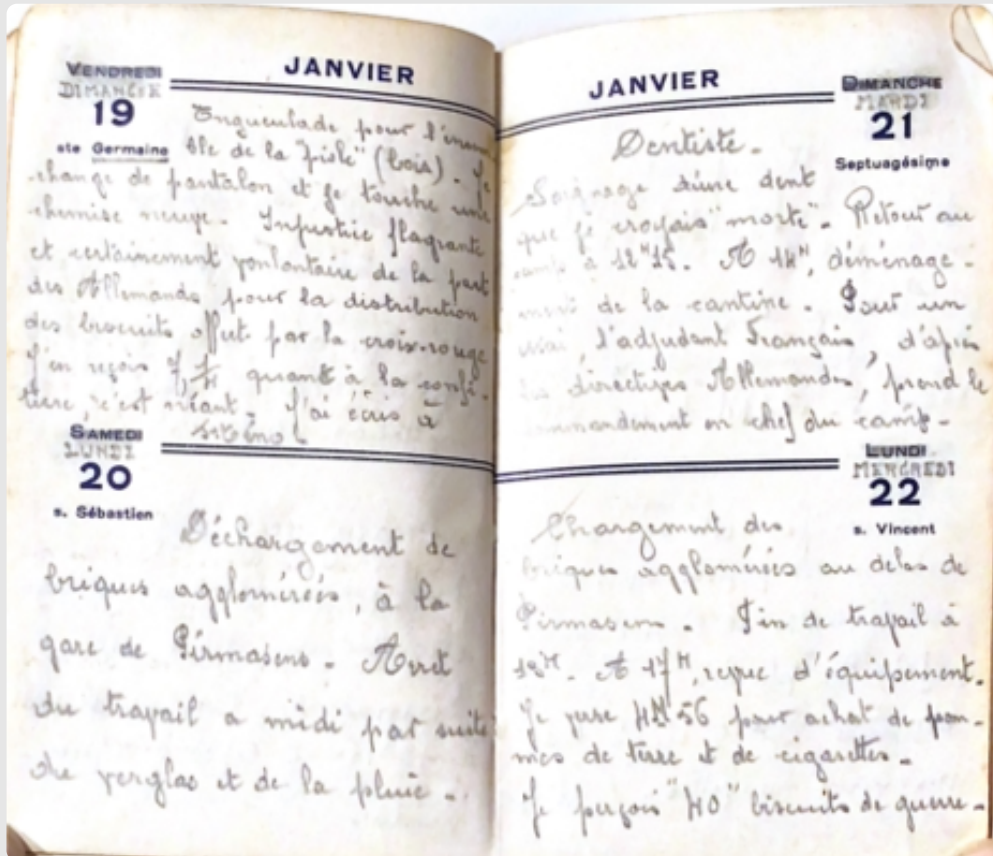 JANVIER
VENDREDI
DIMANCHE
19
ste Germaine
Engueulade pour l'inten-
ble de la "piste" (bois). Je
change de pantalon et je touche une
chemise neuve. Injustice flagrante
et certainement volontaire de la part
des Allemands pour la distribution
des biscuits offert par la croix-rouge
J'en reçois 7, quant à la confi-
ture, c'est néant. J'ai écris à
SAMEDI
LUNDI
20
s. Sébastien
Déchargement de
briques agglomérées, à la
gare de Pirmasens. Arret
du travail a midi par suite
du verglas et de la pluie.
JANVIER
DIMANCHE
MARDI
21
Septuagésime
Dentiste.
Soignage d'une dent
que je croyais "morte". Retour au
camp à 12H15. A 14H, déménage-
ment de la cantine. Pour un
essai, l'adjudant Français, d'après
les directives Allemandes, prend le
commandement en chef du camp.
LUNDI
MERCREDI
22
s. Vincent
Chargement des
briques agglomérées au delas de
Pirmasens. Fin de travail à
A 17H, revue d'équipement.
Je verse 56 pour achat de pom-
mes de terre et de cigarettes.
Je perçois "40" biscuits de guerre.